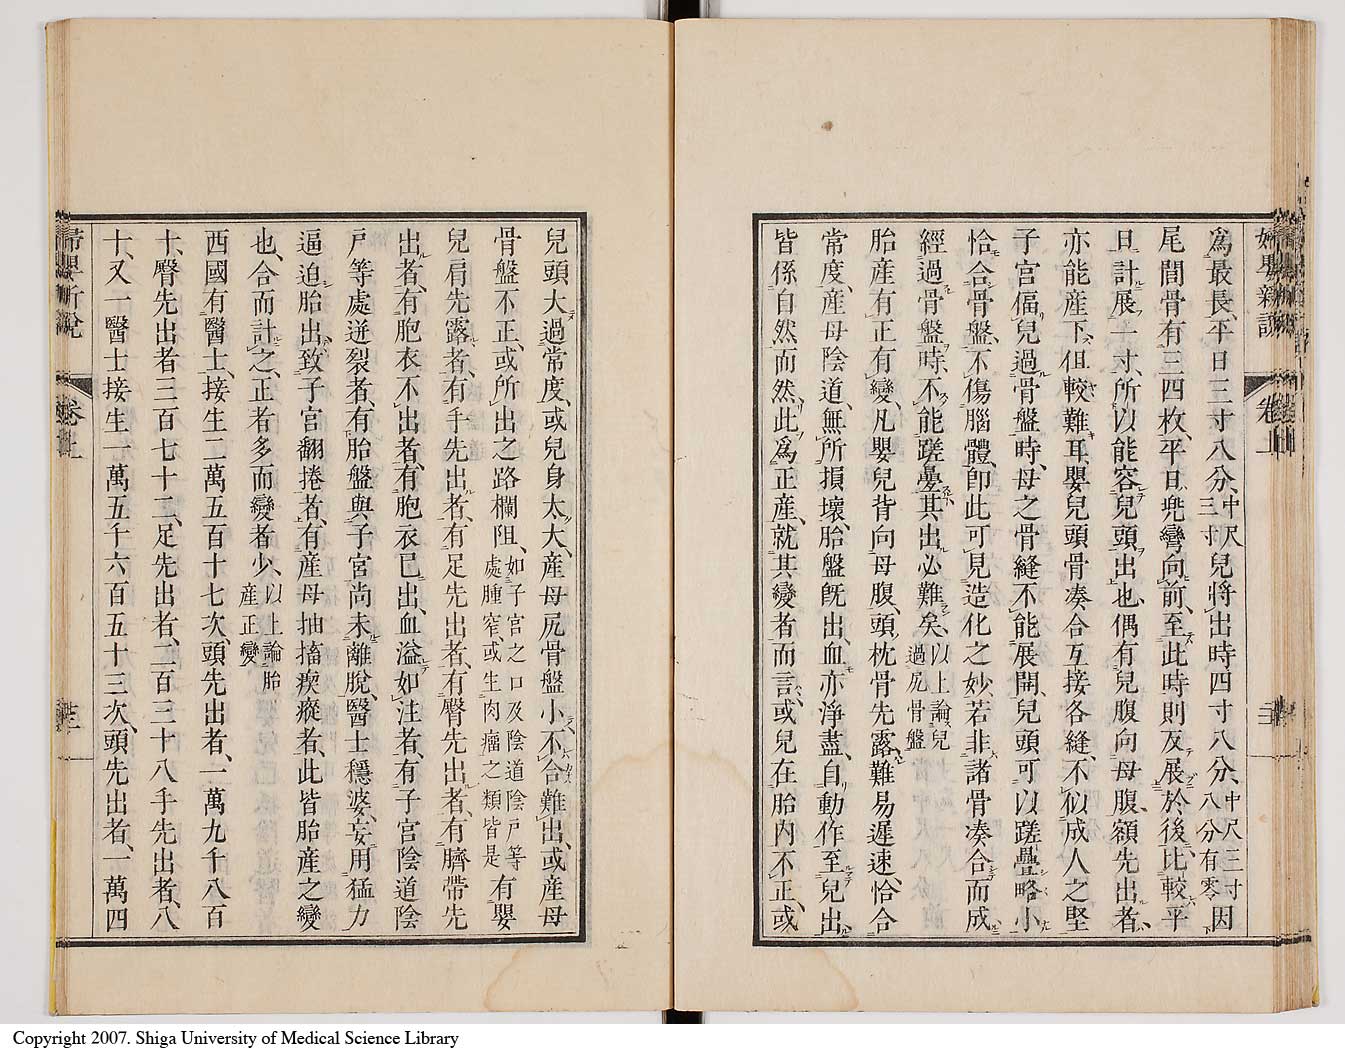 爲最長、平日三寸八分、中尺三寸兒將出時、四寸八分、中尺三寸八分有零因
尾間骨有三四枚、平日兜彎向前、至此時則反展於後、比較平
日計展一寸、所以能容兒頭出也、偶有兒腹向母腹、額先出者、
亦能產下、但較難耳、嬰兒頭骨凑合互接各縫、不似成人之堅
子宮偪兒過骨盤時、母之骨縫不能展開、兒頭可以蹉疊略小
恰合骨盤、不傷腦體、卽此可見造化之妙、若非諸骨凑合而成、
經過骨盤時、不能蹉疊、其出必難矣、以上論兒過尻骨盤
胎產有正有變、凡嬰兒背向母腹、頭枕骨先露、難易遲速、恰合
常度、產母陰道、無所損壞、胎盤旣出、血亦淨盡、自動作至兒出、
皆係自然而然、此爲正產、就其變者而言、或兒在胎內不正、或
兒頭大過常度、或兒身太大、產母尻骨盤小、不合難出、或產母
骨盤不正、或所出之路欄阻、如子宮之口及陰道陰戶等處腫窄、或生肉瘤之類皆是有嬰
兒肩先露者、有手先出者、有足先出者、有臀先出者、有臍帶先
出者、有胞衣不出者、有胞衣已出、血溢如注者、有子宮陰道陰
戶等處迸裂者、有胎盤與子宮尚未離脫、醫士穩婆、妄用猛力
逼迫胎出、致子宮翻捲者、有產母抽搐瘈瘲者、此皆胎產之變
也、合而計之、正者多而變者少、以上論胎產正變
西國有醫士、接生二萬五百十七次、頭先出者、一萬九千八百
十、臀先出者三百七十二、足先出者、二百三十八手先出者、八
十、又一醫士接生一萬五千六百五十三次、頭先出者、一萬四
Copyright 2007. Shiga University of Medical Science Library